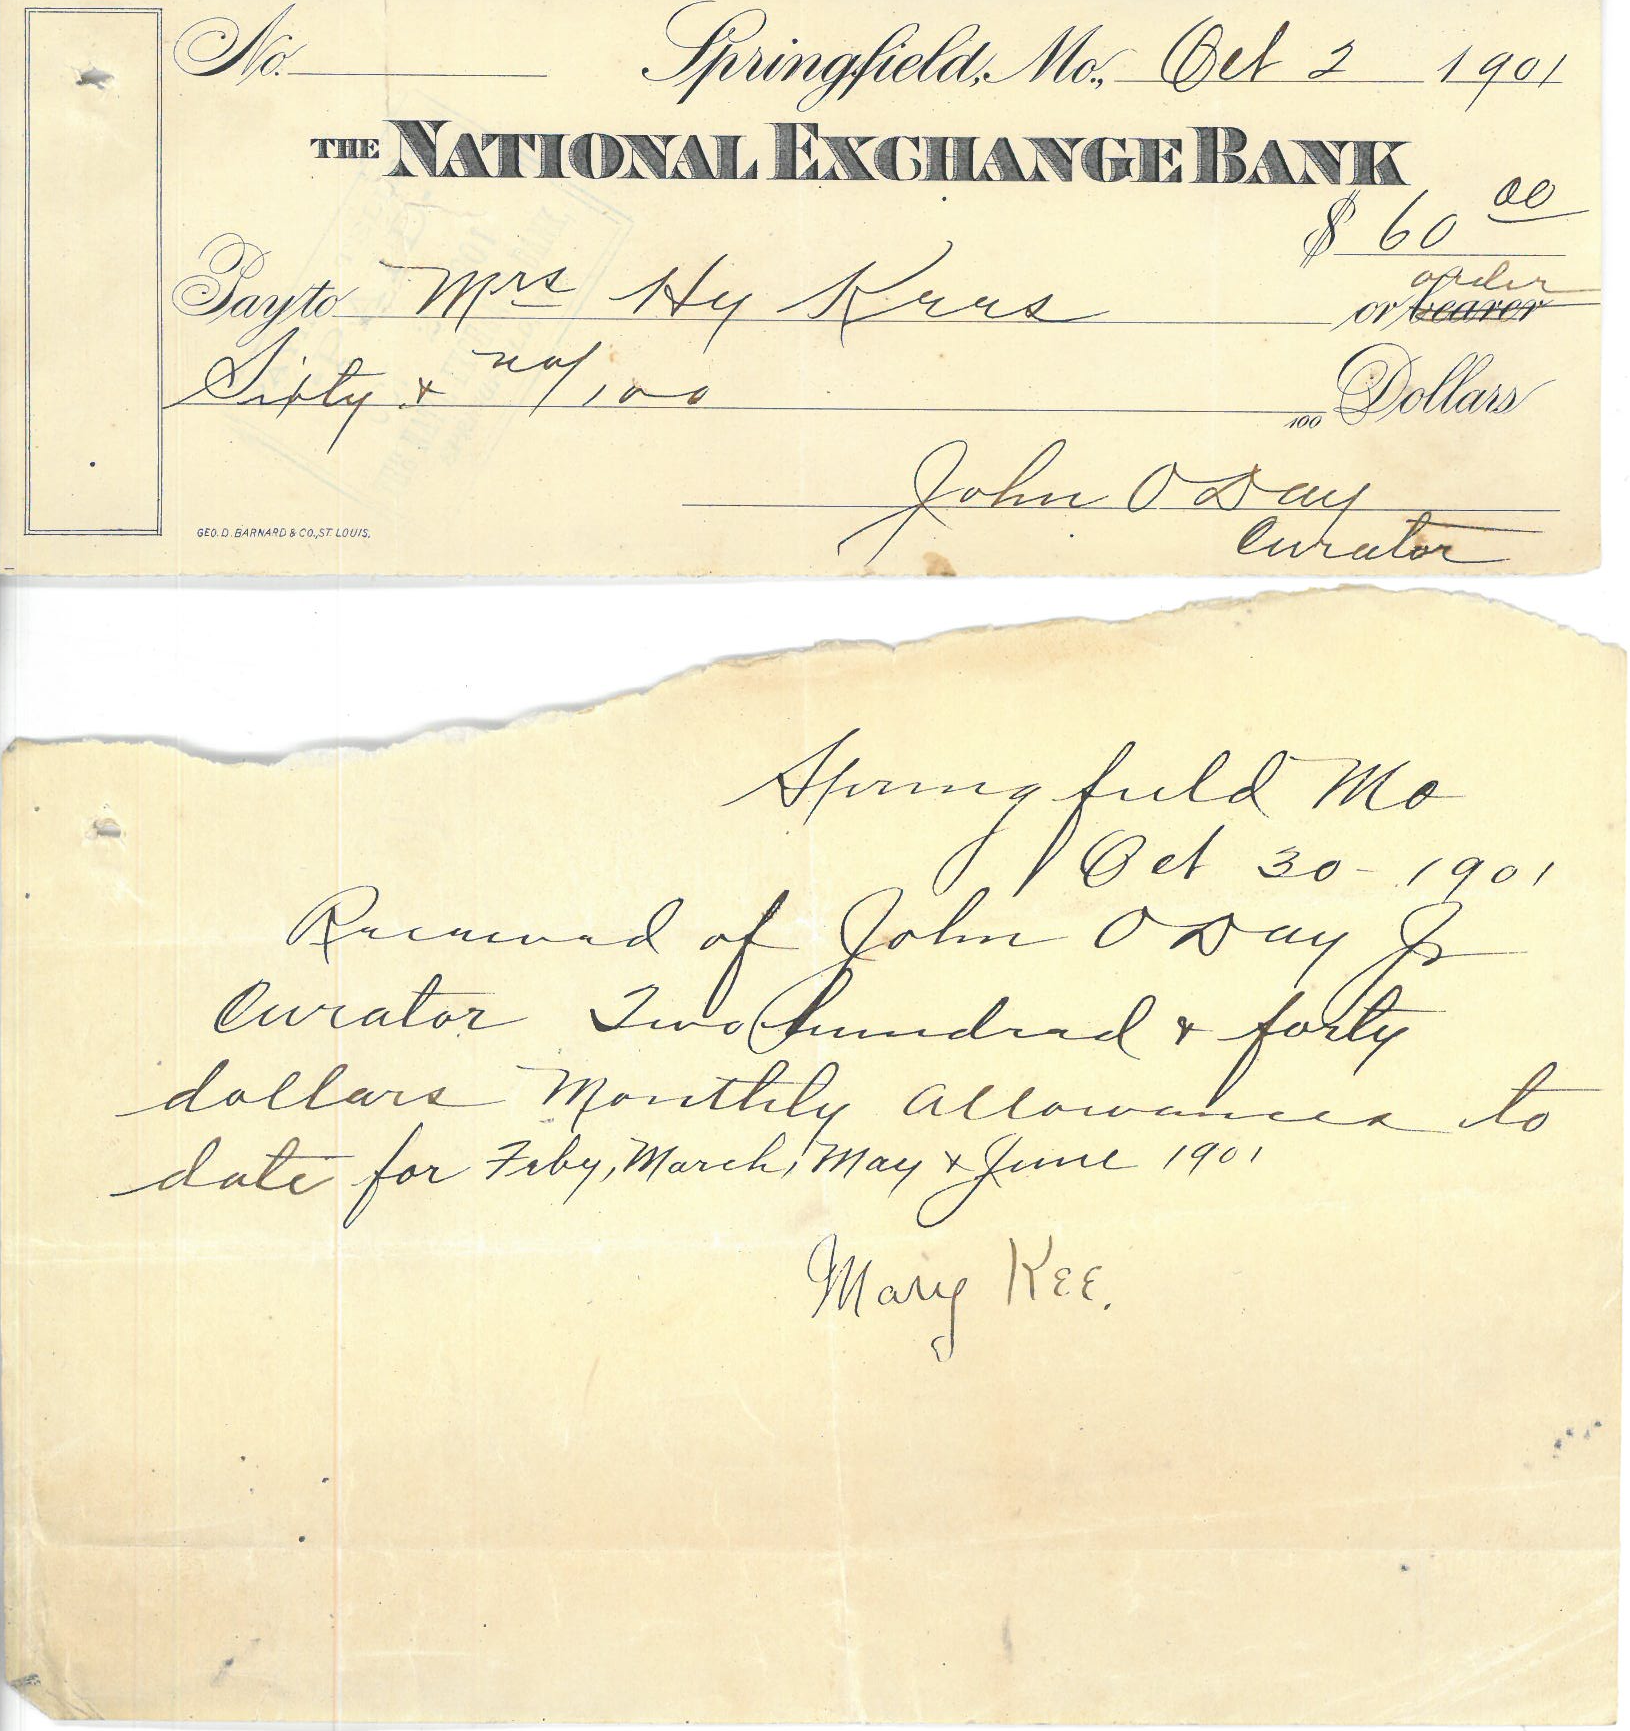 No. Springfield, Mo., Oct 2 1901
THE NATIONAL EXCHANGE BANK
$ 60 00
order
Pay to Mrs Hy Kees or bearer
Sixty & no/100 100 Dollars
John O Day
Curator
GEO. D. BARNARD & CO., ST. LOUIS.
Springfield Mo
Oct 30 - 1901
Received of John O Day Jr
Curator Two hundred & forty
dollars Monthly Allowances to
date for Feby, March, May & June 1901
Mary Kee.